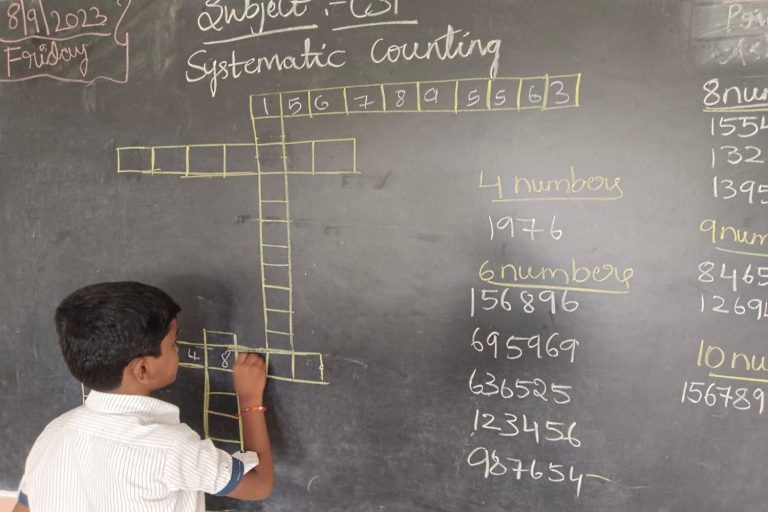 8/9/2023
Friday
Subject :- CST
Systematic counting
1 5 6 7 8 9 5 5 6 3
4 8
4 numbers
1976
6 numbers
156896
695969
636525
123456
987654
8 num
1554
132
1395
9 num
8465
1269
10 nu
156789